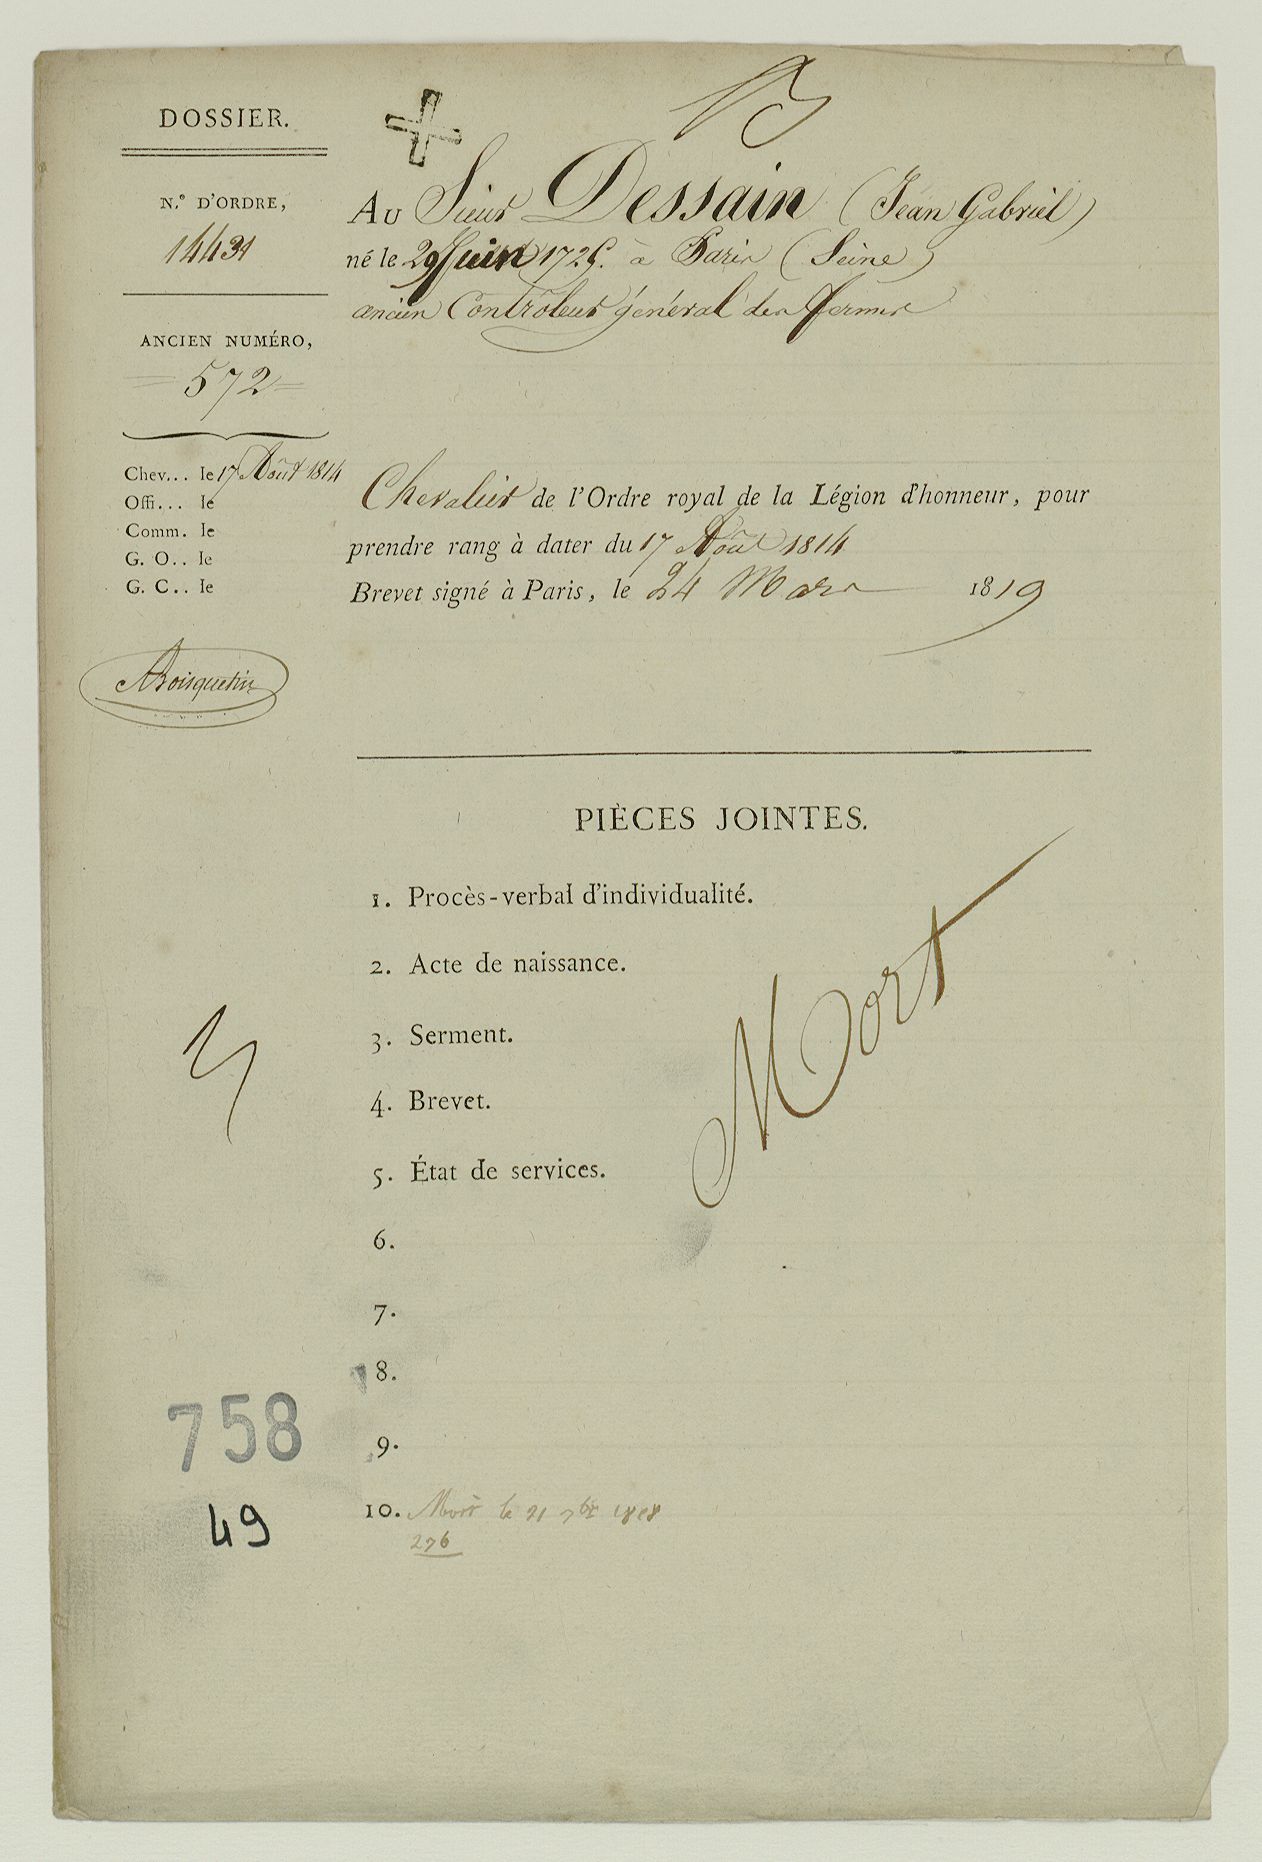 DOSSIER.
N.º D'ORDRE,
14431
ANCIEN NUMÉRO,
572
Chev... le 17 Août 1814
Offi... le
Comm. le
G. O.. le
G. C.. le
ABoisquetin
Au Sieur Dessain (Jean Gabriel)
né le 29 Juin 1725. à Paris (Seine)
ancien Contrôleur général des fermes
Chevalier de l'Ordre royal de la Légion d'honneur, pour
prendre rang à dater du 17 Août 1814
Brevet signé à Paris, le 24 Mars 1819
PIÈCES JOINTES.
1. Procès-verbal d'individualité.
2. Acte de naissance.
3. Serment.
4. Brevet.
5. État de services.
6.
7.
8.
9.
10. Mort le 21 7bre
276
Mort
758
49